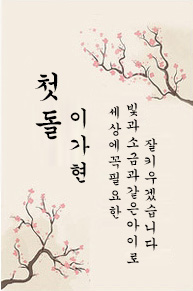 첫돌
이가현
세상에꼭필요한
빛과소금과같은아이로
잘키우겠습니다